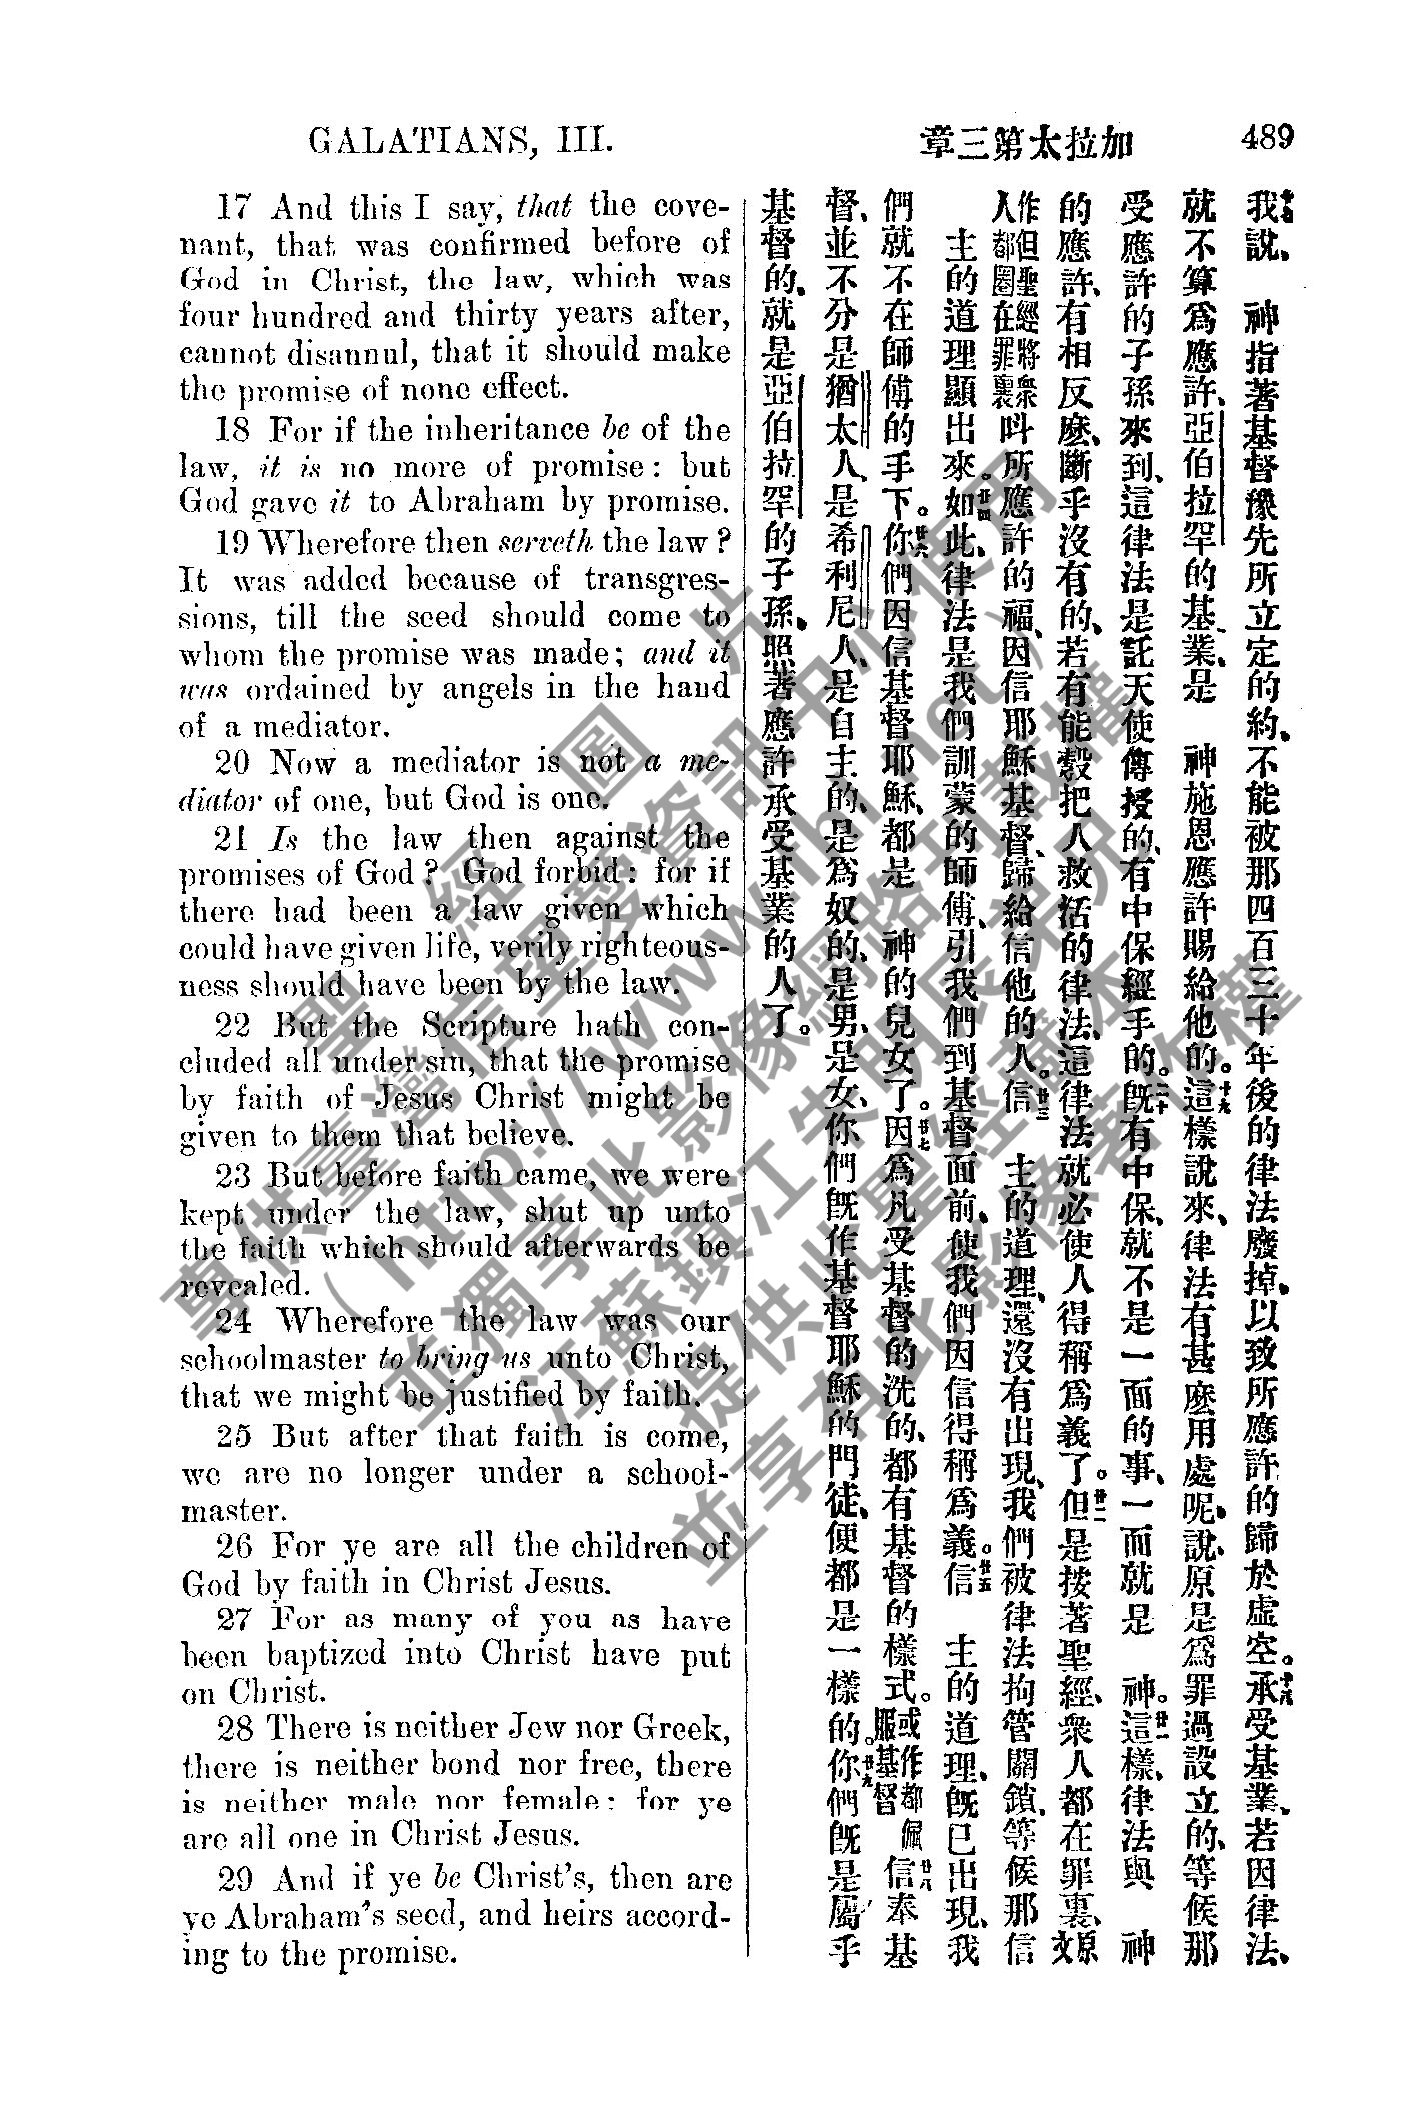 GALATIANS, III.
加拉太第三章
489
17 And this I say, that the cove-
nant, that was confirmed before of
God in Christ, the law, which was
four hundred and thirty years after,
cannot disannul, that it should make
the promise of none effect.
18 For if the inheritance be of the
law, it is no more of promise: but
God gave it to Abraham by promise.
19 Wherefore then serveth the law?
It was added because of transgres-
sions, till the seed should come to
whom the promise was made; and it
was ordained by angels in the hand
of a mediator.
20 Now a mediator is not a me-
diator of one, but God is one.
21 Is the law then against the
promises of God? God forbid: for if
there had been a law given which
could have given life, verily righteous-
ness should have been by the law.
22 But the Scripture hath con-
cluded all under sin, that the promise
by faith of Jesus Christ might be
given to them that believe.
23 But before faith came, we were
kept under the law, shut up unto
the faith which should afterwards be
revealed.
24 Wherefore the law was our
schoolmaster to bring us unto Christ,
that we might be justified by faith.
25 But after that faith is come,
we are no longer under a school-
master.
26 For ye are all the children of
God by faith in Christ Jesus.
27 For as many of you as have
been baptized into Christ have put
on Christ.
28 There is neither Jew nor Greek,
there is neither bond nor free, there
is neither male nor female: for ye
are all one in Christ Jesus.
29 And if ye be Christ's, then are
ye Abraham's seed, and heirs accord-
ing to the promise.
十七我說、神指著基督豫先所立定的約、不能被那四百三十年後的律法廢掉、以致所應許的歸於虛空。十八承受基業、若因律法、
就不算爲應許、亞伯拉罕的基業、是 神施恩應許賜給他的。十九這樣說來、律法有甚麽用處呢、說、原是爲罪過設立的、等候那
受應許的子孫來到、這律法是託天使傳授的、有中保經手的。二十旣有中保、就不是一面的事、一面就是 神。廿一這樣、律法與 神
的應許、有相反麽、斷乎沒有的、若有能彀把人救活的律法、這律法就必使人得稱爲義了。廿二但是按著聖經、衆人都在罪裏、原文
作但聖經將衆人都圈在罪裏呌所應許的福、因信耶穌基督、歸給信他的人。廿三信 主的道理、還沒有出現、我們被律法拘管關鎖、等候那信
主的道理顯出來。廿四如此、律法是我們訓蒙的師傅、引我們到基督面前、使我們因信得稱爲義。廿五信 主的道理、旣已出現、我
們就不在師傅的手下。廿六你們因信基督耶穌、都是 神的兒女了。廿七因爲凡受基督的洗的、都有基督的樣式。或作都佩服基督廿八信奉基
督、並不分是猶太人、是希利尼人、是自主的、是爲奴的、是男、是女、你們旣作基督耶穌的門徒、便都是一樣的。廿九你們旣是屬乎
基督的、就是亞伯拉罕的子孫、照著應許承受基業的人了。